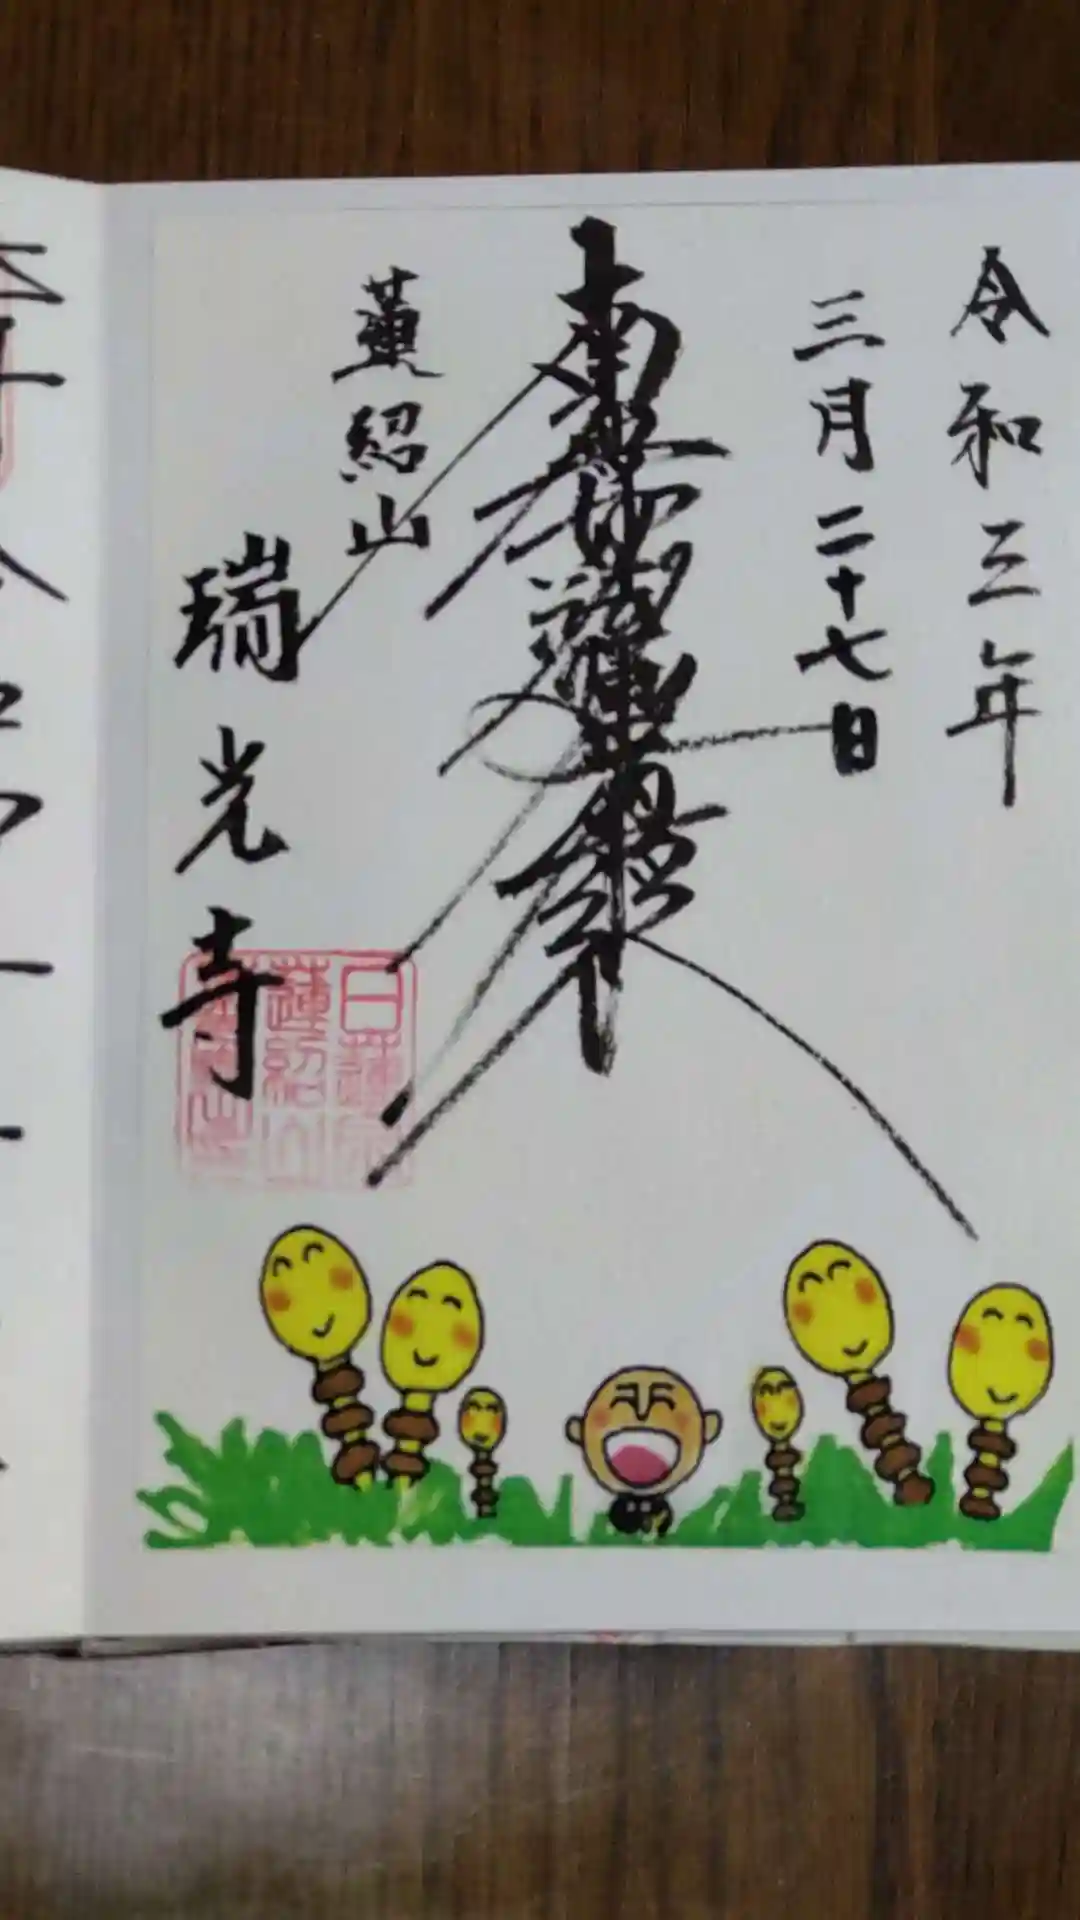 令和三年
三月二十七日
南無妙法蓮華経
蓮紹山
瑞光寺
日蓮宗
蓮紹山